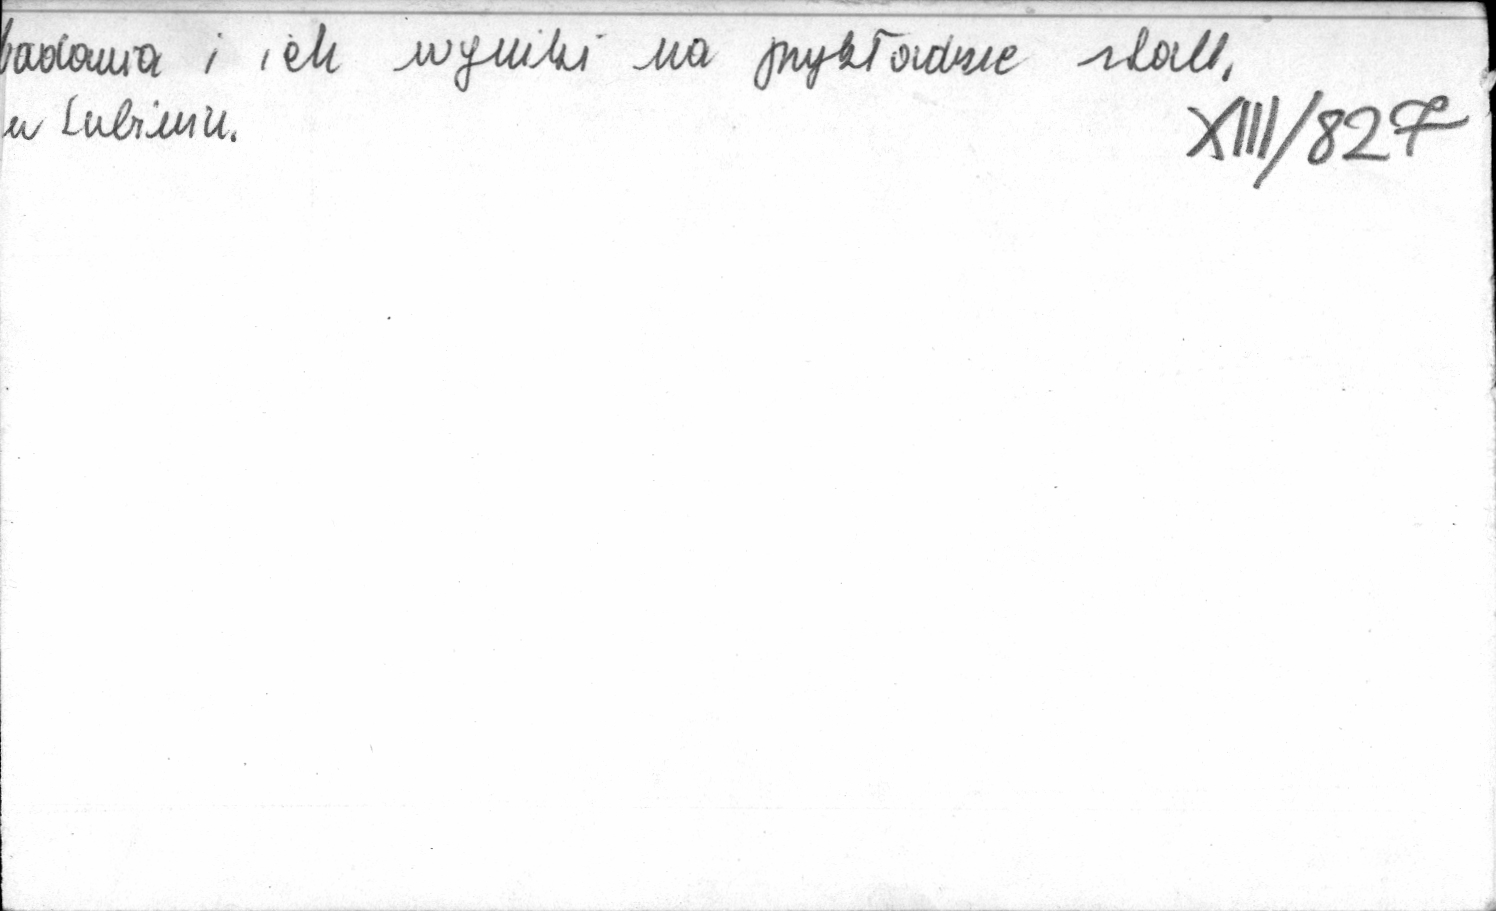 badania i ich wyniki na przykładzie stall.
w Lubiniu.
XIII/827